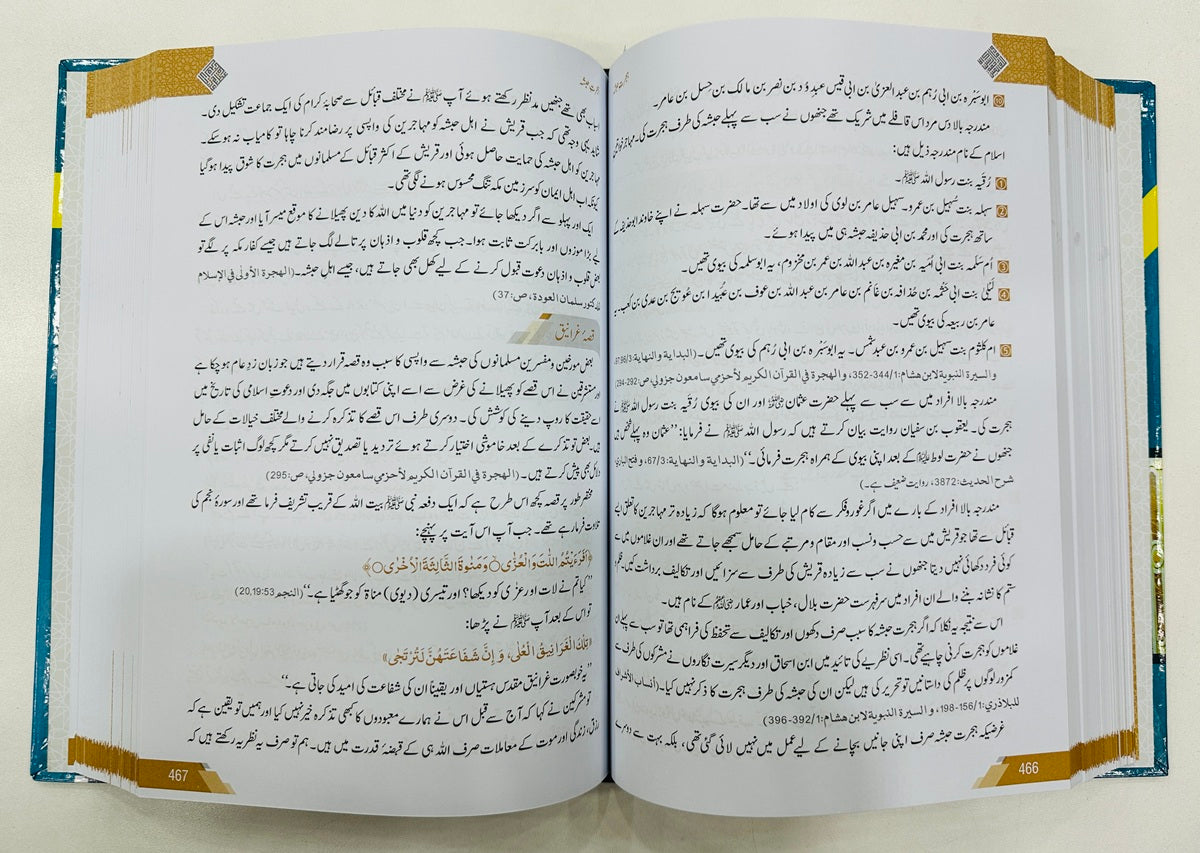 ہجرت حبشہ
⑩ ابوسَبْرہ بن ابی رُہم بن عبدالعزیٰ بن ابی قیس عبدوُد بن نصر بن مالک بن حِسل بن عامر۔
مندرجہ بالا دس مرد اس قافلے میں شریک تھے جنھوں نے سب سے پہلے حبشہ کی طرف ہجرت کی۔ مہاجر خواتین
اسلام کے نام مندرجہ ذیل ہیں:
① رُقَیہ بنت رسول اللہ ﷺ۔
② سہلہ بنت سُہیل بن عمرو۔ سہیل عامر بن لوی کی اولاد میں سے تھا۔ حضرت سہلہ نے اپنے خاوند ابوحذیفہ کے
ساتھ ہجرت کی اور محمد بن ابی حذیفہ حبشہ ہی میں پیدا ہوئے۔
③ اُم سَلَمہ بنت ابی اُمَیہ بن مغیرہ بن عبد اللہ بن عمر بن مخزوم، یہ ابوسلمہ کی بیوی تھیں۔
④ لَیلیٰ بنت ابی حَثْمہ بن حُذافہ بن غَانم بن عامر بن عبد اللہ بن عوف بن عُبید ابن عُویج بن عدی بن کعب۔ یہ
عامر بن ربیعہ کی بیوی تھیں۔
⑤ ام کلثوم بنت سہیل بن عمرو بن عبدشمس۔ یہ ابوسَبْرہ بن ابی رُہم کی بیوی تھیں۔ (البدایة والنھایة: 97،96/3،
والسیرة النبویة لابن ھشام: 344/1-352، والھجرة فی القرآن الکریم لأحزمي سامعون جزولي، ص: 292-294)
مندرجہ بالا افراد میں سے سب سے پہلے حضرت عثمان رضی اللہ عنہ اور ان کی بیوی رُقیہ بنت رسول اللہ ﷺ نے
ہجرت کی۔ یعقوب بن سفیان روایت بیان کرتے ہیں کہ رسول اللہ ﷺ نے فرمایا: ”عثمان وہ پہلے شخص ہیں
جنھوں نے حضرت لوط علیہ السلام کے بعد اپنی بیوی کے ہمراہ ہجرت فرمائی۔“ (البدایة والنھایة: 67/3، و فتح الباري،
شرح الحدیث: 3872، روایت ضعیف ہے۔)
مندرجہ بالا افراد کے بارے میں اگر غور و فکر سے کام لیا جائے تو معلوم ہوگا کہ زیادہ تر مہاجرین کا تعلق ایسے
قبائل سے تھا جو قریش میں سے حسب و نسب اور مقام و مرتبے کے حامل سمجھے جاتے تھے اور ان غلاموں میں سے
کوئی فرد دکھائی نہیں دیتا جنھوں نے سب سے زیادہ قریش کی طرف سے سزائیں اور تکالیف برداشت کیں۔ ظلم و
ستم کا نشانہ بننے والے ان افراد میں سرفہرست حضرت بلال، خباب اور عمار رضی اللہ عنہم کے نام ہیں۔
اس سے نتیجہ یہ نکلا کہ اگر ہجرت حبشہ کا سبب صرف دکھوں اور تکالیف سے تحفظ کی فراہمی تھا تو سب سے پہلے ان
غلاموں کو ہجرت کرنی چاہیے تھی۔ اسی نظریے کی تائید میں ابن اسحاق اور دیگر سیرت نگاروں نے مشرکوں کی طرف سے
کمزور لوگوں پر ظلم کی داستانیں تو تحریر کی ہیں لیکن ان کی حبشہ کی طرف ہجرت کا ذکر نہیں کیا۔ (أنساب الأشراف
للبلاذري: 156/1-198، و السیرة النبویة لابن ھشام: 392/1-396)
غرضیکہ ہجرت حبشہ صرف اپنی جانیں بچانے کے لیے عمل میں نہیں لائی گئی تھی، بلکہ بہت سے دوسرے
466
ہجرت حبشہ
اسباب بھی تھے جنھیں مدنظر رکھتے ہوئے آپ ﷺ نے مختلف قبائل سے صحابۂ کرام کی ایک جماعت تشکیل دی۔
شاید یہی وجہ تھی کہ جب قریش نے اہل حبشہ کو مہاجرین کی واپسی پر رضامند کرنا چاہا تو کامیاب نہ ہوسکے۔
مہاجرین کو اہل حبشہ کی حمایت حاصل ہوئی اور قریش کے اکثر قبائل کے مسلمانوں میں ہجرت کا شوق پیدا ہوگیا
کیونکہ اب اہل ایمان کو سرزمین مکہ تنگ محسوس ہونے لگی تھی۔
ایک اور پہلو سے اگر دیکھا جائے تو مہاجرین کو دنیا میں اللہ کا دین پھیلانے کا موقع میسر آیا اور حبشہ اس کے
لیے بڑا موزوں اور بابرکت ثابت ہوا۔ جب کچھ قلوب و اذہان پر تالے لگ جاتے ہیں جیسے کفار مکہ پر لگے تو
بعض قلوب و اذہان دعوت قبول کرنے کے لیے کھل بھی جاتے ہیں، جیسے اہل حبشہ۔ (الھجرة الأولٰی في الإسلام
للدکتور سلمان العودة، ص: 37)
قصۂ غرانیق
بعض مورخین و مفسرین مسلمانوں کی حبشہ سے واپسی کا سبب وہ قصہ قرار دیتے ہیں جو زبان زدِ عام ہوچکا ہے
اور مستشرقین نے اس قصے کو پھیلانے کی غرض سے اسے اپنی کتابوں میں جگہ دی اور دعوتِ اسلامی کی تاریخ میں
اسے حقیقت کا روپ دینے کی کوشش کی۔ دوسری طرف اس قصے کا تذکرہ کرنے والے مختلف خیالات کے حامل
ہیں۔ بعض تو تذکرے کے بعد خاموشی اختیار کرتے ہوئے تردید یا تصدیق نہیں کرتے مگر کچھ لوگ اثبات یا نفی پر
دلائل بھی پیش کرتے ہیں۔ (الھجرة في القرآن الکریم لأحزمي سامعون جزولي، ص: 295)
مختصر طور پر قصہ کچھ اس طرح ہے کہ ایک دفعہ نبی ﷺ بیت اللہ کے قریب تشریف فرما تھے اور سورۂ نجم کی
تلاوت فرما رہے تھے۔ جب آپ اس آیت پر پہنچے:
﴿اَفَرَءَيْتُمُ اللّٰتَ وَالْعُزّٰى ۝ وَمَنٰوةَ الثَّالِثَةَ الْاُخْرٰى ۝﴾
”کیا تم نے لات اور عزّٰی کو دیکھا؟ اور تیسری (دیوی) مناۃ کو جو گھٹیا ہے۔“ (النجم 20،19:53)
تو اس کے بعد آپ ﷺ نے پڑھا:
«تِلْكَ الْغَرَانِيقُ الْعُلٰى، وَ إِنَّ شَفَاعَتَهُنَّ لَتُرْتَجٰى»
”یہ خوبصورت غرانیق مقدس ہستیاں اور یقیناً ان کی شفاعت کی امید کی جاتی ہے۔“
تو مشرکین نے کہا کہ آج سے قبل اس نے ہمارے معبودوں کا کبھی تذکرہ خیر نہیں کیا اور ہمیں تو یقین ہے کہ
رزق، زندگی اور موت کے معاملات صرف اللہ ہی کے قبضۂ قدرت میں ہیں۔ ہم تو صرف یہ نظریہ رکھتے ہیں کہ
467